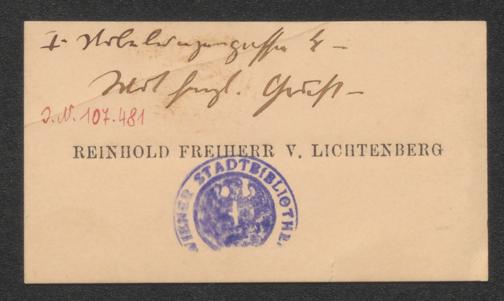 I. Nibelungengasse 4 –
Mit hrzl. Gruß –
J.N. 107.481
REINHOLD FREIHERR V. LICHTENBERG
WIENER STADTBIBLIOTHEK